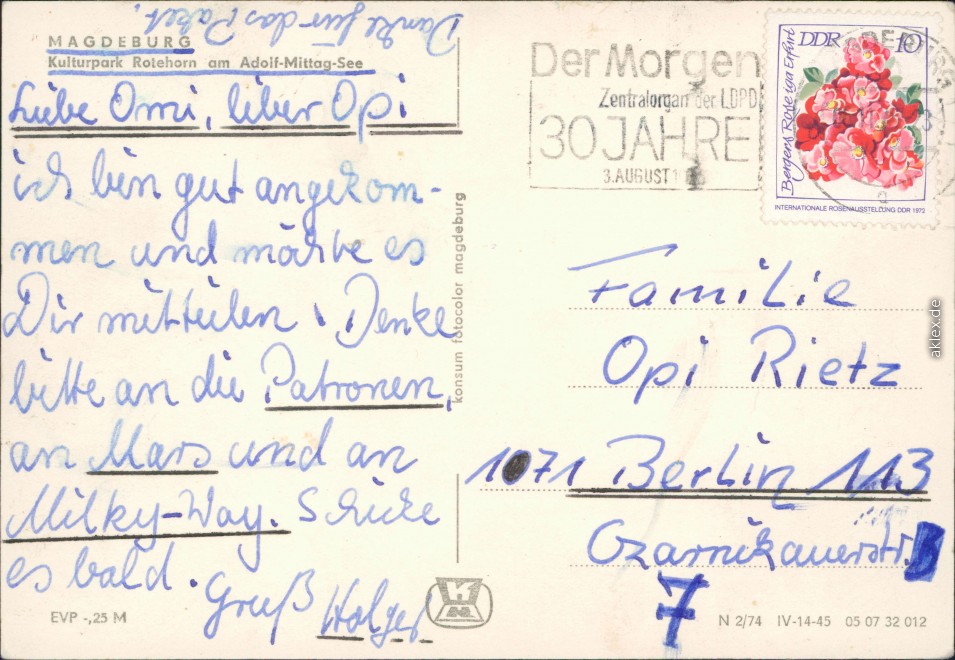 Danke für das Paket.
MAGDEBURG
Kulturpark Rotehorn am Adolf-Mittag-See
Liebe Omi, liber Opi
ich bin gut angekom-
men und möchte es
Dir mitteilen. Denke
bitte an die Patronen,
an Mars und an
Milky-Way. Schicke
es bald.
Gruß Holger
EVP -,25 M
konsum fotocolor magdeburg
Der Morgen
Zentralorgan der LDPD
30 JAHRE
3. AUGUST
DDR 10
Bergers Rose iga Erfurt
INTERNATIONALE ROSENAUSSTELLUNG DDR 1972
Familie
Opi Rietz
1071 Berlin 113
Czarnikauerstr.
7
N 2/74 IV-14-45 05 07 32 012
aklex.de